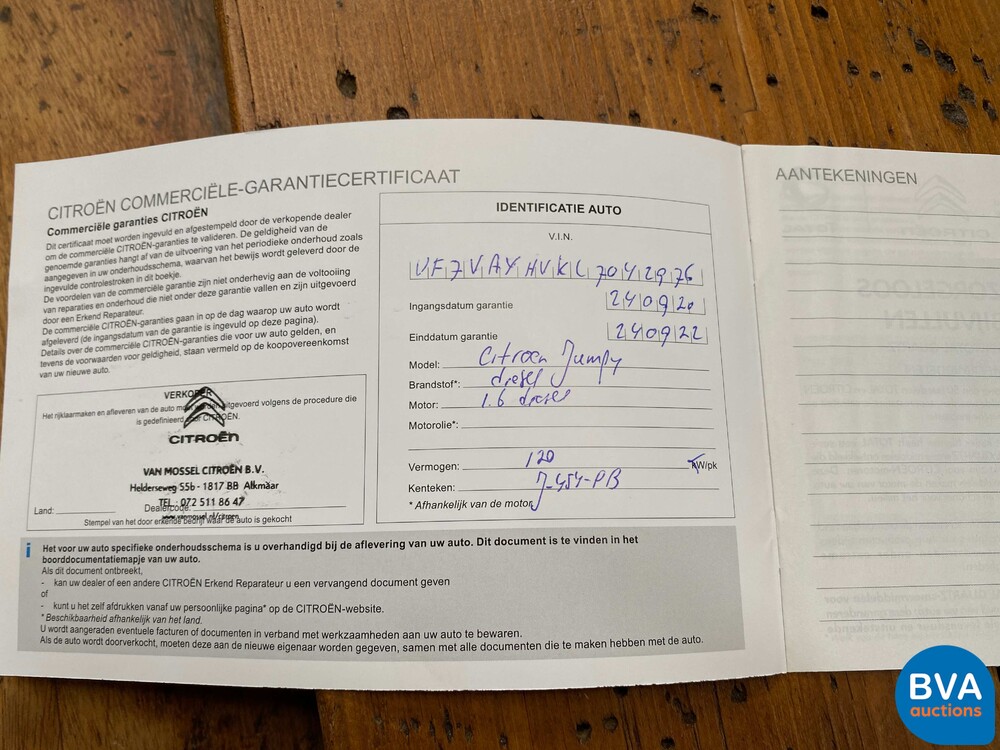 CITROËN COMMERCIËLE-GARANTIECERTIFICAAT
Commerciële garanties CITROËN
Dit certificaat moet worden ingevuld en afgestempeld door de verkopende dealer
om de commerciële CITROËN-garanties te valideren. De geldigheid van de
genoemde garanties hangt af van de uitvoering van het periodieke onderhoud zoals
aangegeven in uw onderhoudsschema, waarvan het bewijs wordt geleverd door de
ingevulde controlestroken in dit boekje.
De voordelen van de commerciële garantie zijn niet onderhevig aan de voltooiing
van reparaties en onderhoud die niet onder deze garantie vallen en zijn uitgevoerd
door een Erkend Reparateur.
De commerciële CITROËN-garanties gaan in op de dag waarop uw auto wordt
afgeleverd (de ingangsdatum van de garantie is ingevuld op deze pagina).
Details over de commerciële CITROËN-garanties die voor uw auto gelden, en
tevens de voorwaarden voor geldigheid, staan vermeld op de koopovereenkomst
van uw nieuwe auto.
VERKOPER
Het rijklaarmaken en afleveren van de auto uitgevoerd volgens de procedure die
is gedefinieerd CITROËN.
CITROËN
VAN MOSSEL CITROËN B.V.
Helderseweg 55b - 1817 BB Alkmaar
TEL.: 072 511 86 47
Land: Dealercode:
www.vanmossel.nl/citroen
Stempel van het door erkende bedrijf waar de auto is gekocht
IDENTIFICATIE AUTO
V.I.N.
VF7VAYHVKLZ042976
Ingangsdatum garantie 240920
Einddatum garantie 240922
Model: Citroën Jumpy
Brandstof*: diesel
Motor: 1.6 diesel
Motorolie*:
Vermogen: 120 kW/pk
Kenteken: J-454-PB
* Afhankelijk van de motor
i Het voor uw auto specifieke onderhoudsschema is u overhandigd bij de aflevering van uw auto. Dit document is te vinden in het
boorddocumentatiemapje van uw auto.
Als dit document ontbreekt,
- kan uw dealer of een andere CITROËN Erkend Reparateur u een vervangend document geven
of
- kunt u het zelf afdrukken vanaf uw persoonlijke pagina* op de CITROËN-website.
* Beschikbaarheid afhankelijk van het land.
U wordt aangeraden eventuele facturen of documenten in verband met werkzaamheden aan uw auto te bewaren.
Als de auto wordt doorverkocht, moeten deze aan de nieuwe eigenaar worden gegeven, samen met alle documenten die te maken hebben met de auto.
AANTEKENINGEN
BVA
auctions